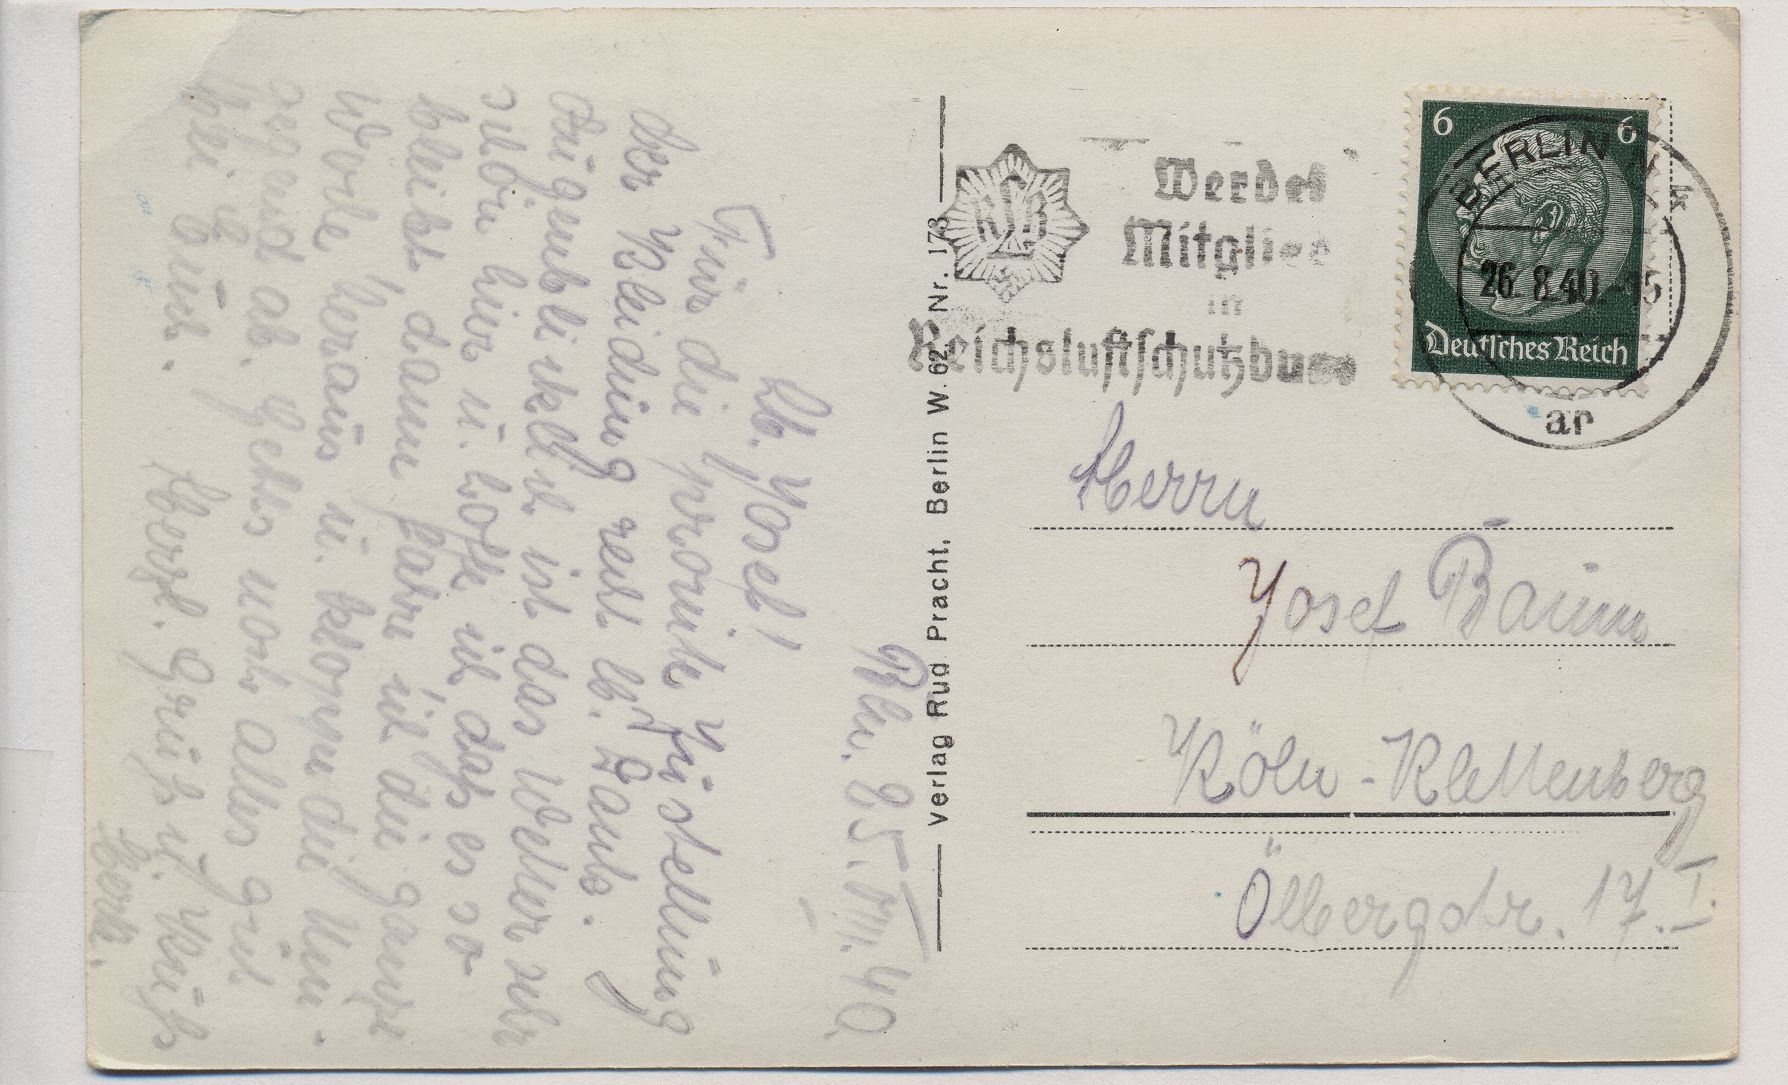 Bln. 25.VIII.40.
Lb. Josef!
Für die promte Zustellung
der Kleidung recht lb. Dank.
Augenblicklich ist das Wetter sehr
schön hier u. hoffe ich daß es so
bleibt dann fahre ich die ganze
Woche heraus u. klopfe die Um-
gegend ab. Gehts noch alles gut
bei Euch.
Herzl. Gruß u. Kuß
Verlag Rud. Pracht, Berlin W. 62. Nr. 173
RLB
Werdet
Mitglied
im
Reichsluftschutzbund
6 6
Deutsches Reich
BERLIN
26.8.40.-15
ar
Herrn
Josef Baum
Köln-Klettenberg
Ölbergstr. 17.I.